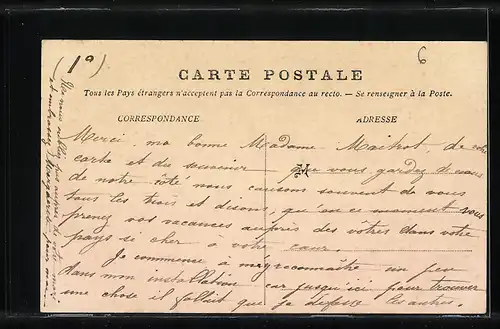 (1°)
6
CARTE POSTALE
Tous les Pays étrangers n'acceptent pas la Correspondance au recto. — Se renseigner à la Poste.
CORRESPONDANCE
ADRESSE
M
Merci, ma bonne Madame Maitrot, de votre
carte et du souvenir que vous gardez de nous
de notre côté nous causons souvent de vous
tous les trois et disons, qu'en ce moment vous
prenez vos vacances auprès des vôtres dans votre
pays si cher à votre cœur.
Je commence à m'y reconnaître un peu
dans mon installation car jusqu'ici pour trouver
une chose il fallait que je défasse les autres.
et embrassez Marguerite pour moi